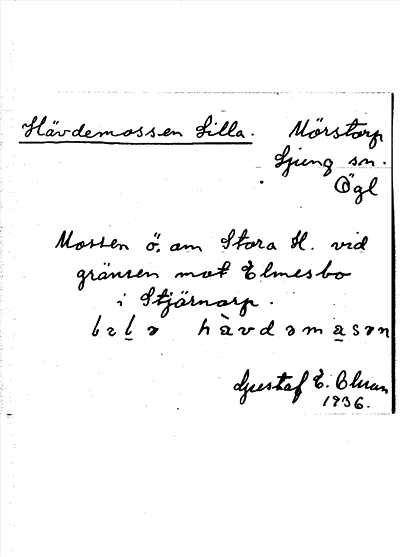 Hävdemossen Lilla. Mörstorp
Ljung sn.
Ögl
Mossen ö. om Stora H. vid
gränsen mot Elmesbo
i Stjärnorp.
hàvdəmasən
Gustaf E. Ohman
1936.